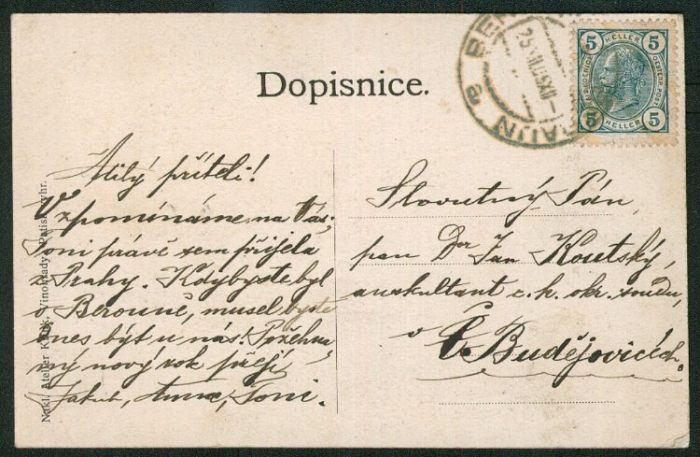 Dopisnice.
5 HELLER 5
5 HELLER 5
BERAUN
Milý příteli!
Vzpomínáme na Vás.
Toni právě sem přijela
z Prahy. Kdybyste byl
v Berouně, musel byste
dnes být u nás! Požehna-
ný nový rok přejí
Jakub, Anna, Toni.
Slovutný Pán
pan Dor Jan Koutský,
auskultant c. k. okr. soudu,
v
Č. Budějovicích.
Nákl. Atelier